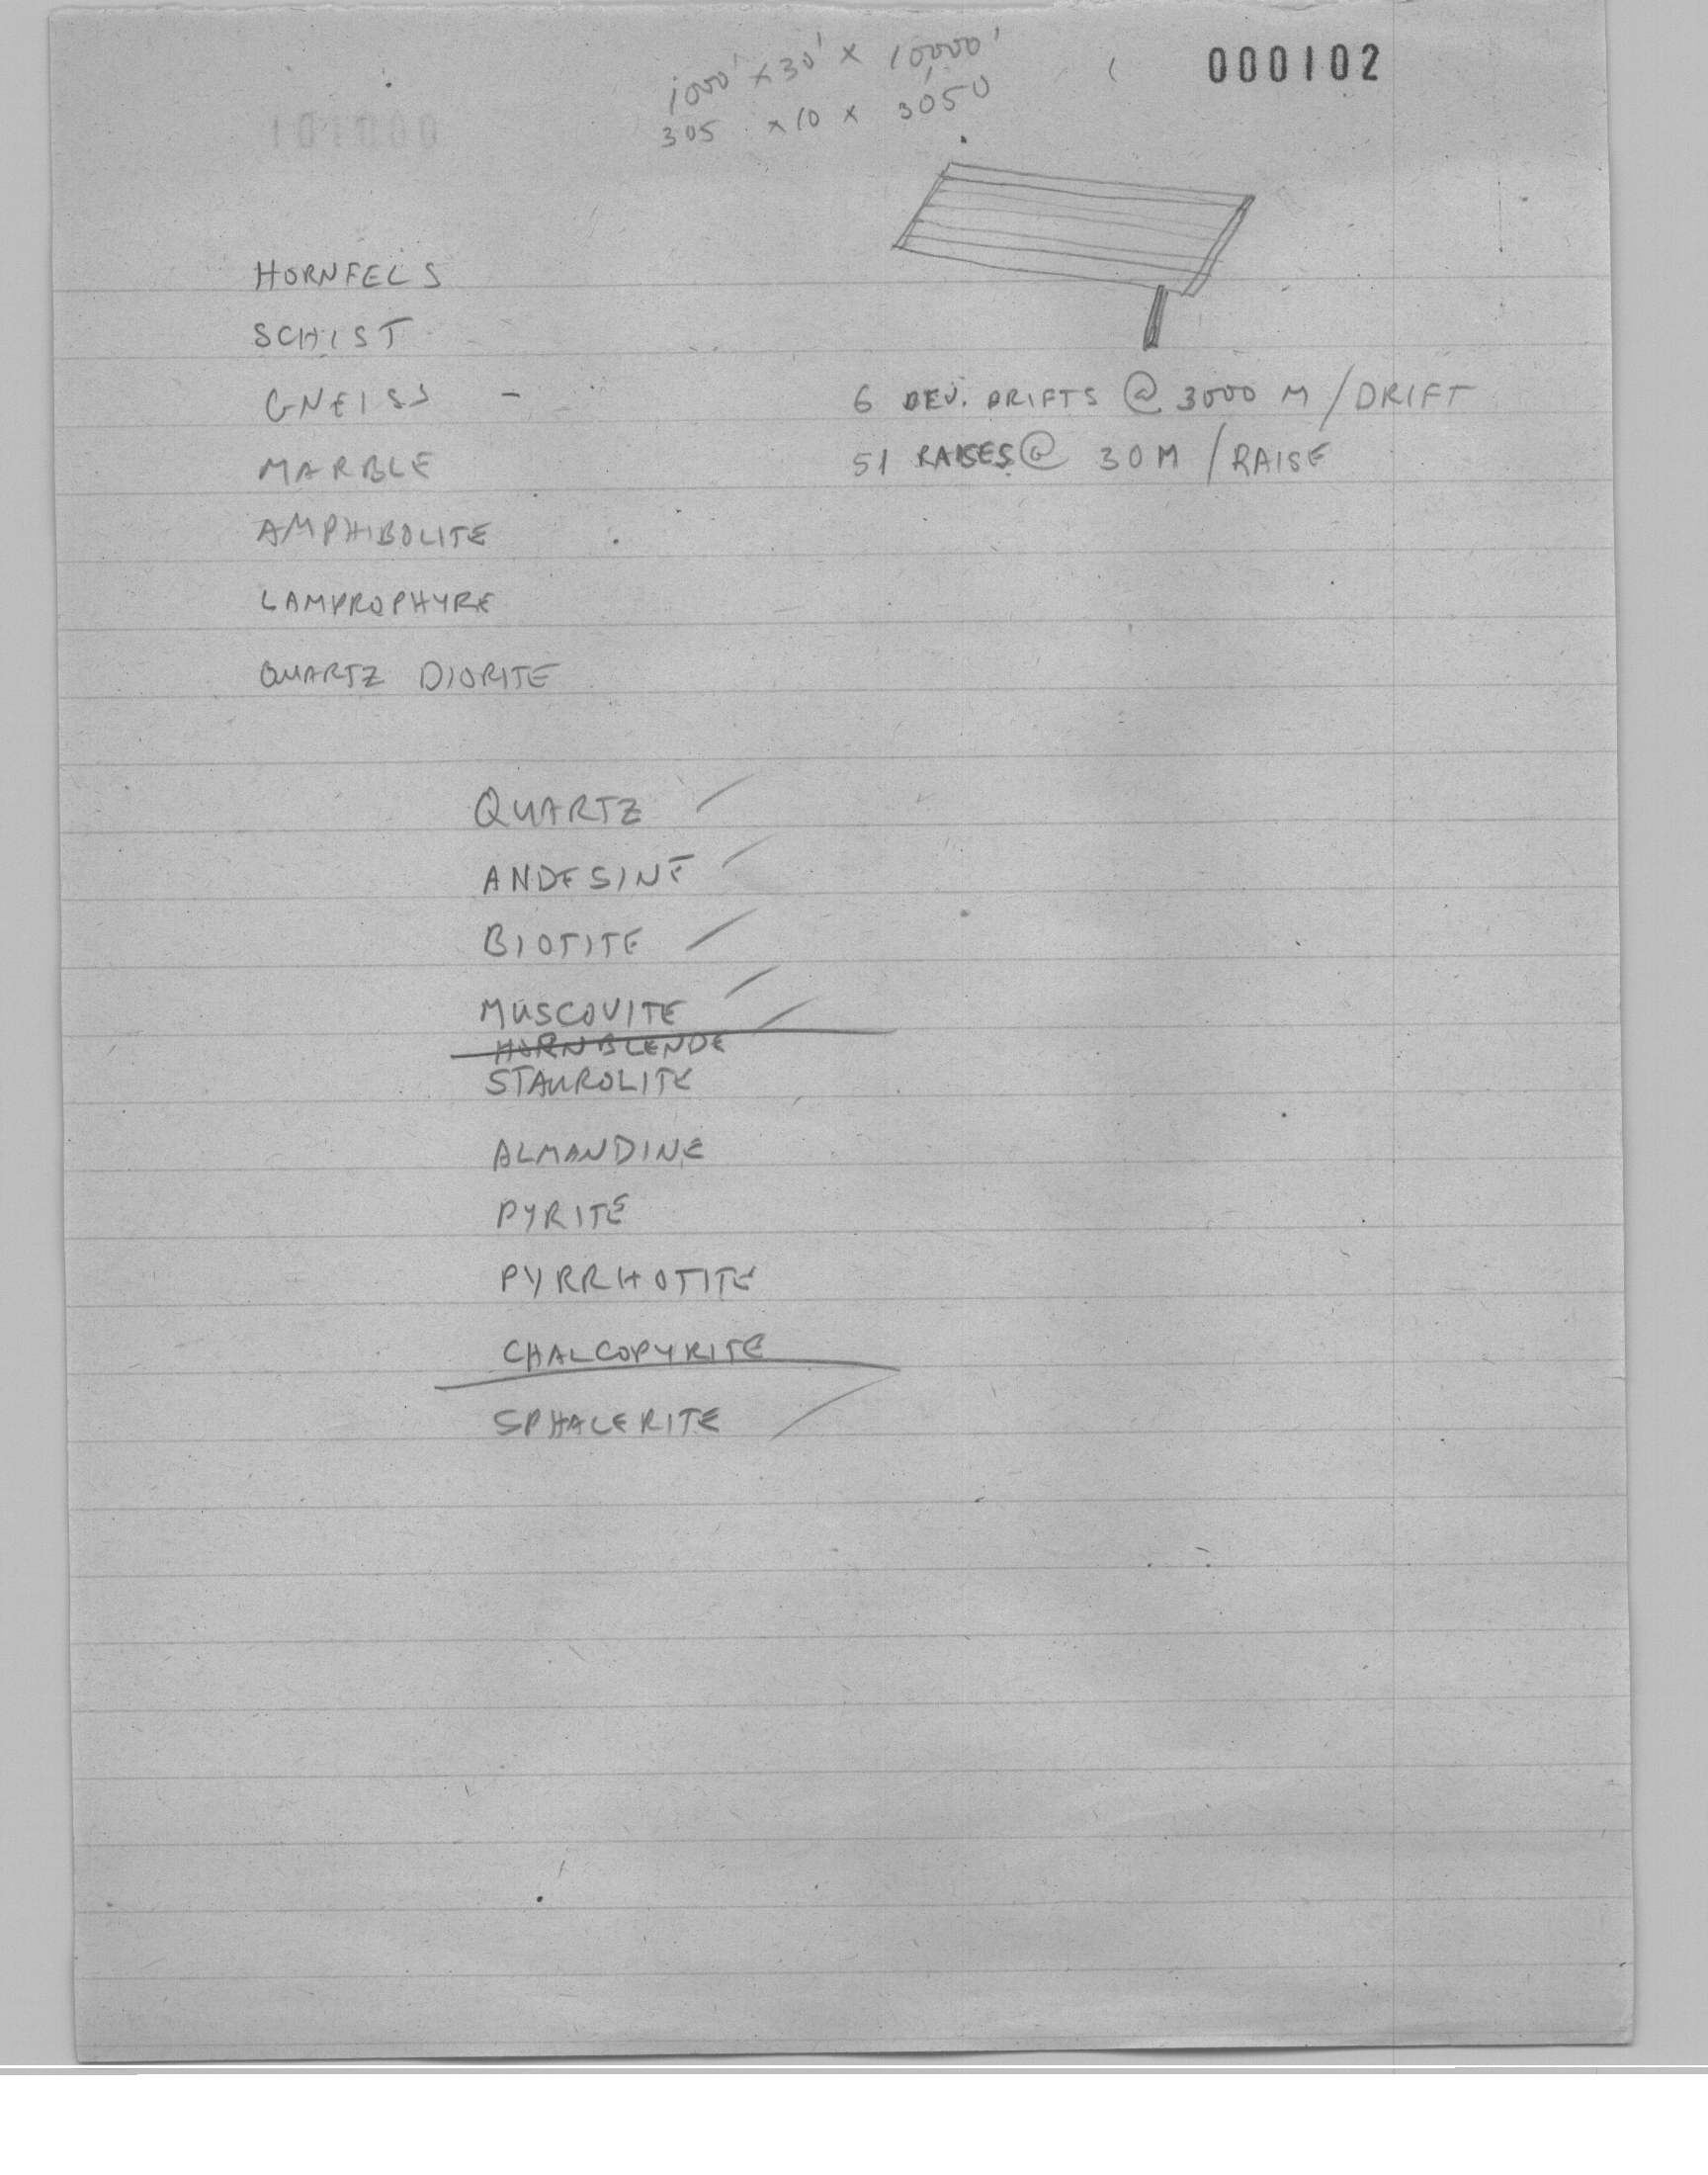 000102
1000' x 30' x 10000'
305 x 10 x 3050
HORNFELS
SCHIST
GNEISS -
6 DEV. DRIFTS @ 3000 M / DRIFT
MARBLE
51 RAISES @ 30M / RAISE
AMPHIBOLITE
LAMPROPHYRE
QUARTZ DIORITE
QUARTZ
ANDESINE
BIOTITE
MUSCOVITE
HORNBLENDE
STAUROLITE
ALMANDINE
PYRITE
PYRRHOTITE
CHALCOPYRITE
SPHALERITE